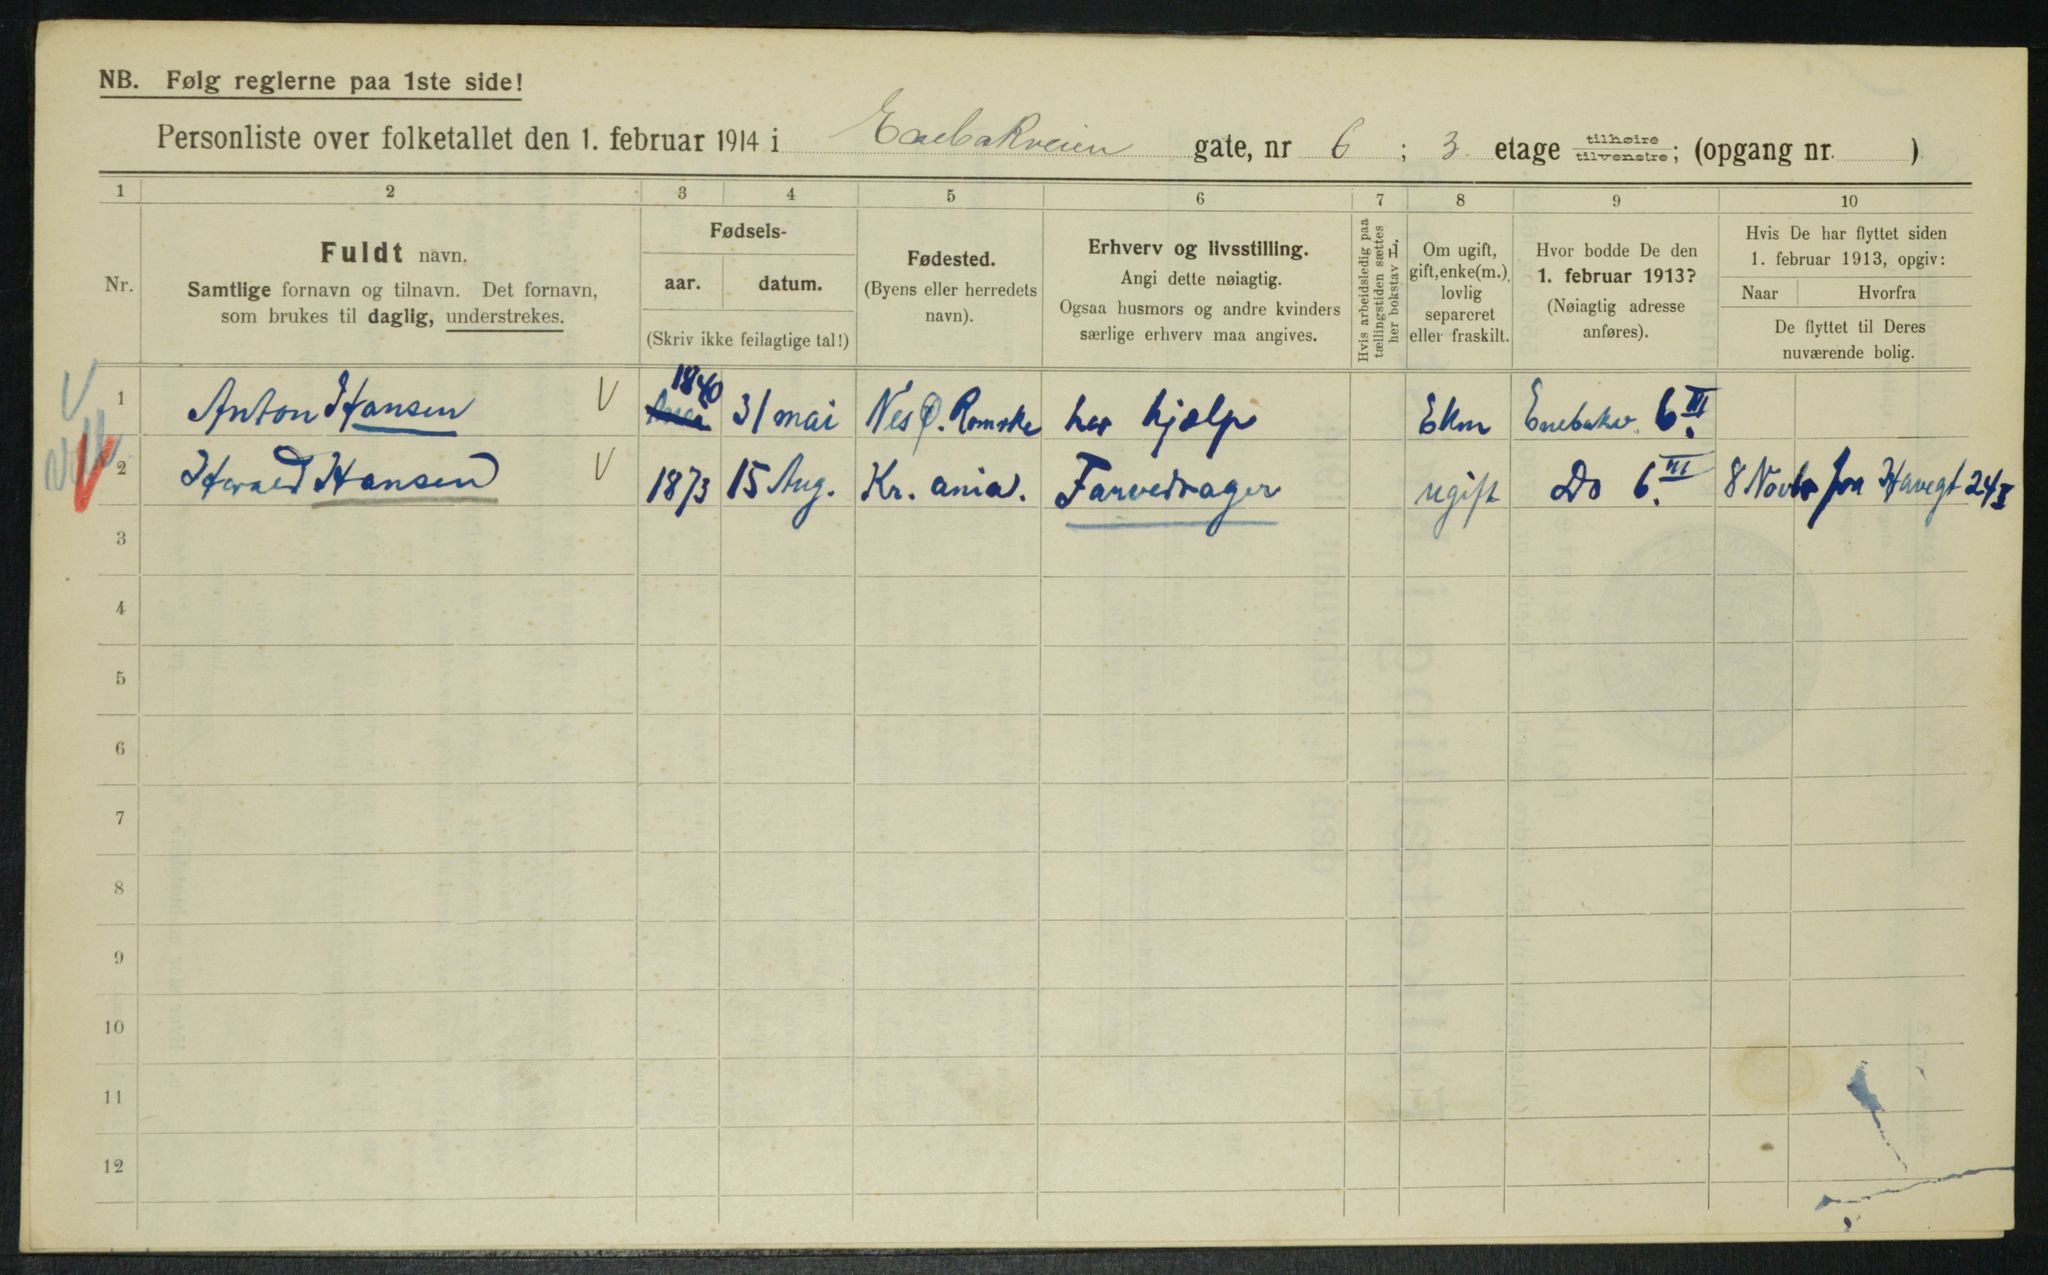 NB. Følg reglerne paa 1ste side!
Personliste over folketallet den 1. februar 1914 i Enebakveien gate, nr 6 ; 3. etage tilhøire tilvenstre; (opgang nr. )
1 2 3 4 5 6 7 8 9 10
Nr.
Fuldt navn.
Samtlige fornavn og tilnavn. Det fornavn,
som brukes til daglig, understrekes.
Fødsels-
aar. datum.
(Skriv ikke feilagtige tal!)
Fødested.
(Byens eller herredets
navn).
Erhverv og livsstilling.
Angi dette nøiagtig.
Ogsaa husmors og andre kvinders
særlige erhverv maa angives.
Hvis arbeidsledig paa
tællingstiden sættes
her bokstav L.
Om ugift,
gift, enke(m.),
lovlig
separeret
eller fraskilt.
Hvor bodde De den
1. februar 1913?
(Nøiagtig adresse
anføres).
Hvis De har flyttet siden
1. februar 1913, opgiv:
Naar Hvorfra
De flyttet til Deres
nuværende bolig.
1 Anton Hansen V 1840 31 mai Nes Ø. Romske har hjælp Ekm Enebakv. 6. III
2 Harald Hansen V 1873 15 Aug. Kr. ania. Farvedrager ugift Do 6. III 8 Novbr fra Havegt 24 I
3
4
5
6
7
8
9
10
11
12